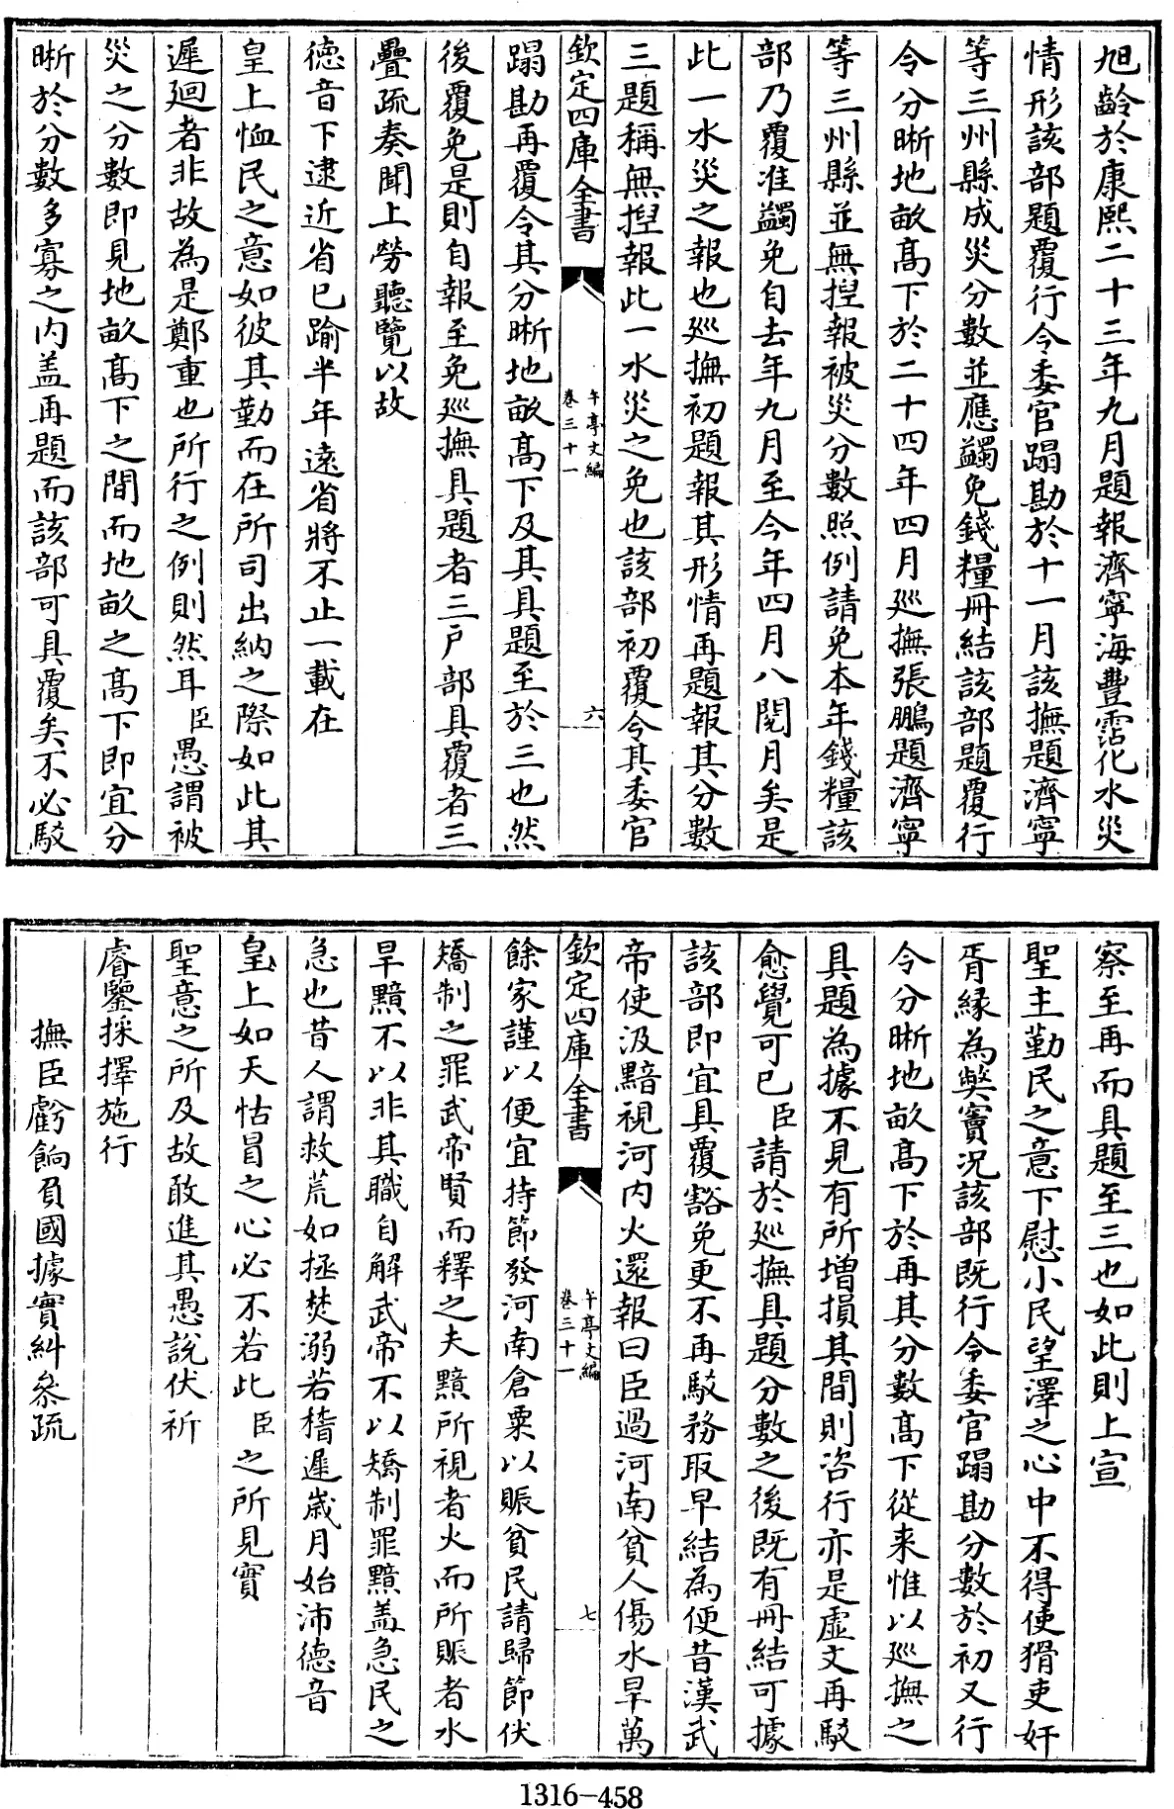 旭齡於康熙二十三年九月題報濟寧海豐霑化水災
情形該部題覆行令委官蹋勘於十一月該撫題濟寧
等三州縣成災分數並應蠲免錢糧冊結該部題覆行
令分晣地畝髙下於二十四年四月廵撫張鵬題濟寧
等三州縣並無揑報被災分數照例請免本年錢糧該
部乃覆准蠲免自去年九月至今年四月八閱月矣是
此一水災之報也廵撫初題報其形情再題報其分數
三題稱無揑報此一水災之免也該部初覆令其委官
欽定四庫全書
午亭文編
卷三十一
六
蹋勘再覆令其分晣地畝髙下及其具題至於三也然
後覆免是則自報至免廵撫具題者三戶部具覆者三
疊疏奏聞上勞聽覽以故
德音下逮近省已踰半年遠省將不止一載在
皇上恤民之意如彼其勤而在所司出納之際如此其
遲廻者非故為是鄭重也所行之例則然耳臣愚謂被
災之分數即見地畝髙下之間而地畝之髙下即宜分
晣於分數多寡之内盖再題而該部可具覆矣不必駁
察至再而具題至三也如此則上宣
聖主勤民之意下慰小民望澤之心中不得使猾吏奸
胥緣為弊竇况該部既行令委官蹋勘分數於初又行
令分晣地畝髙下於再其分數髙下從来惟以廵撫之
具題為據不見有所増損其間則咨行亦是虚文再駁
愈覺可已臣請於廵撫具題分數之後既有冊結可據
該部即宜具覆豁免更不再駁務取早結為便昔漢武
帝使汲黯視河内火還報曰臣過河南貧人傷水旱萬
欽定四庫全書
午亭文編
卷三十一
七
餘家謹以便宜持節發河南倉粟以賑貧民請歸節伏
矯制之罪武帝賢而釋之夫黯所視者火而所賑者水
旱黯不以非其職自解武帝不以矯制罪黯盖急民之
急也昔人謂救荒如拯焚溺若稽遲歲月始沛德音
皇上如天怙冒之心必不若此臣之所見實
聖意之所及故敢進其愚說伏祈
睿鑒採擇施行
撫臣虧餉負國據實糾叅疏
1316-458